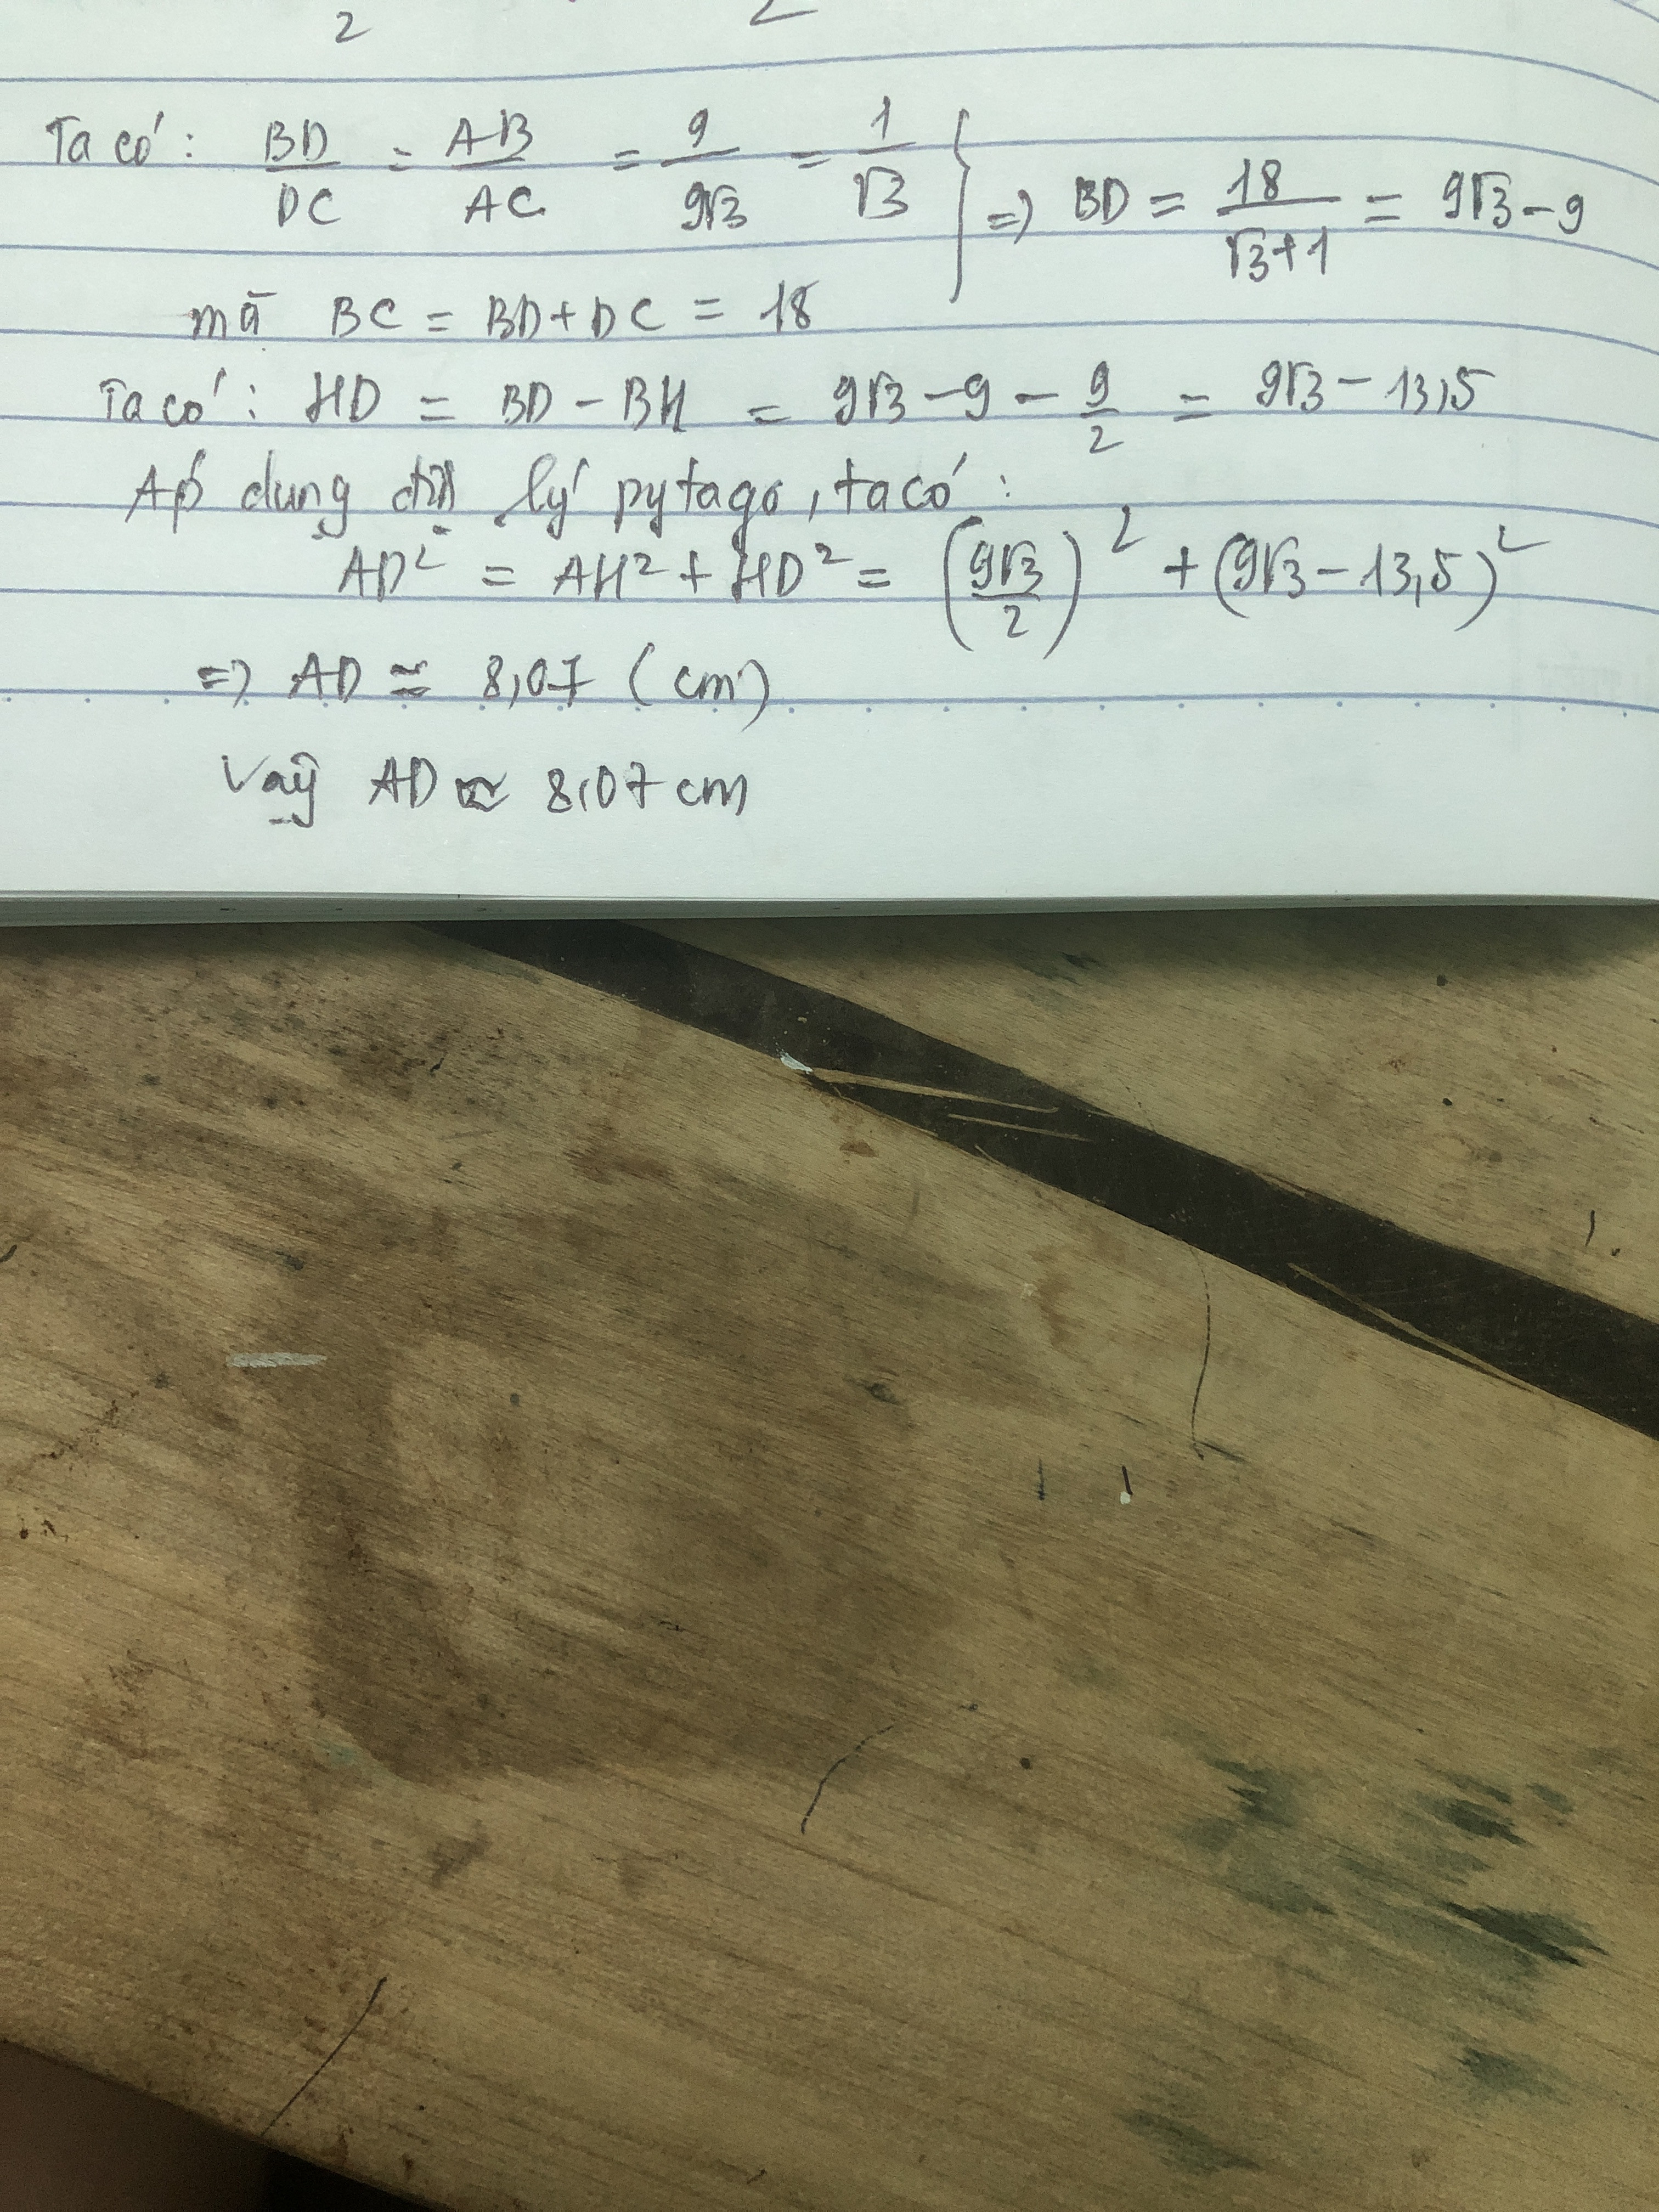 2 2
Ta có: BD/DC = AB/AC = 9/9√3 = 1/√3 } => BD = 18/(√3+1) = 9√3 - 9
mà BC = BD + DC = 18
Ta có: HD = BD - BH = 9√3 - 9 - 9/2 = 9√3 - 13,5
Áp dụng định lý pytago, ta có:
AD² = AH² + HD² = (9√3/2)² + (9√3 - 13,5)²
=> AD ≃ 8,07 (cm)
Vậy AD ≈ 8,07 cm